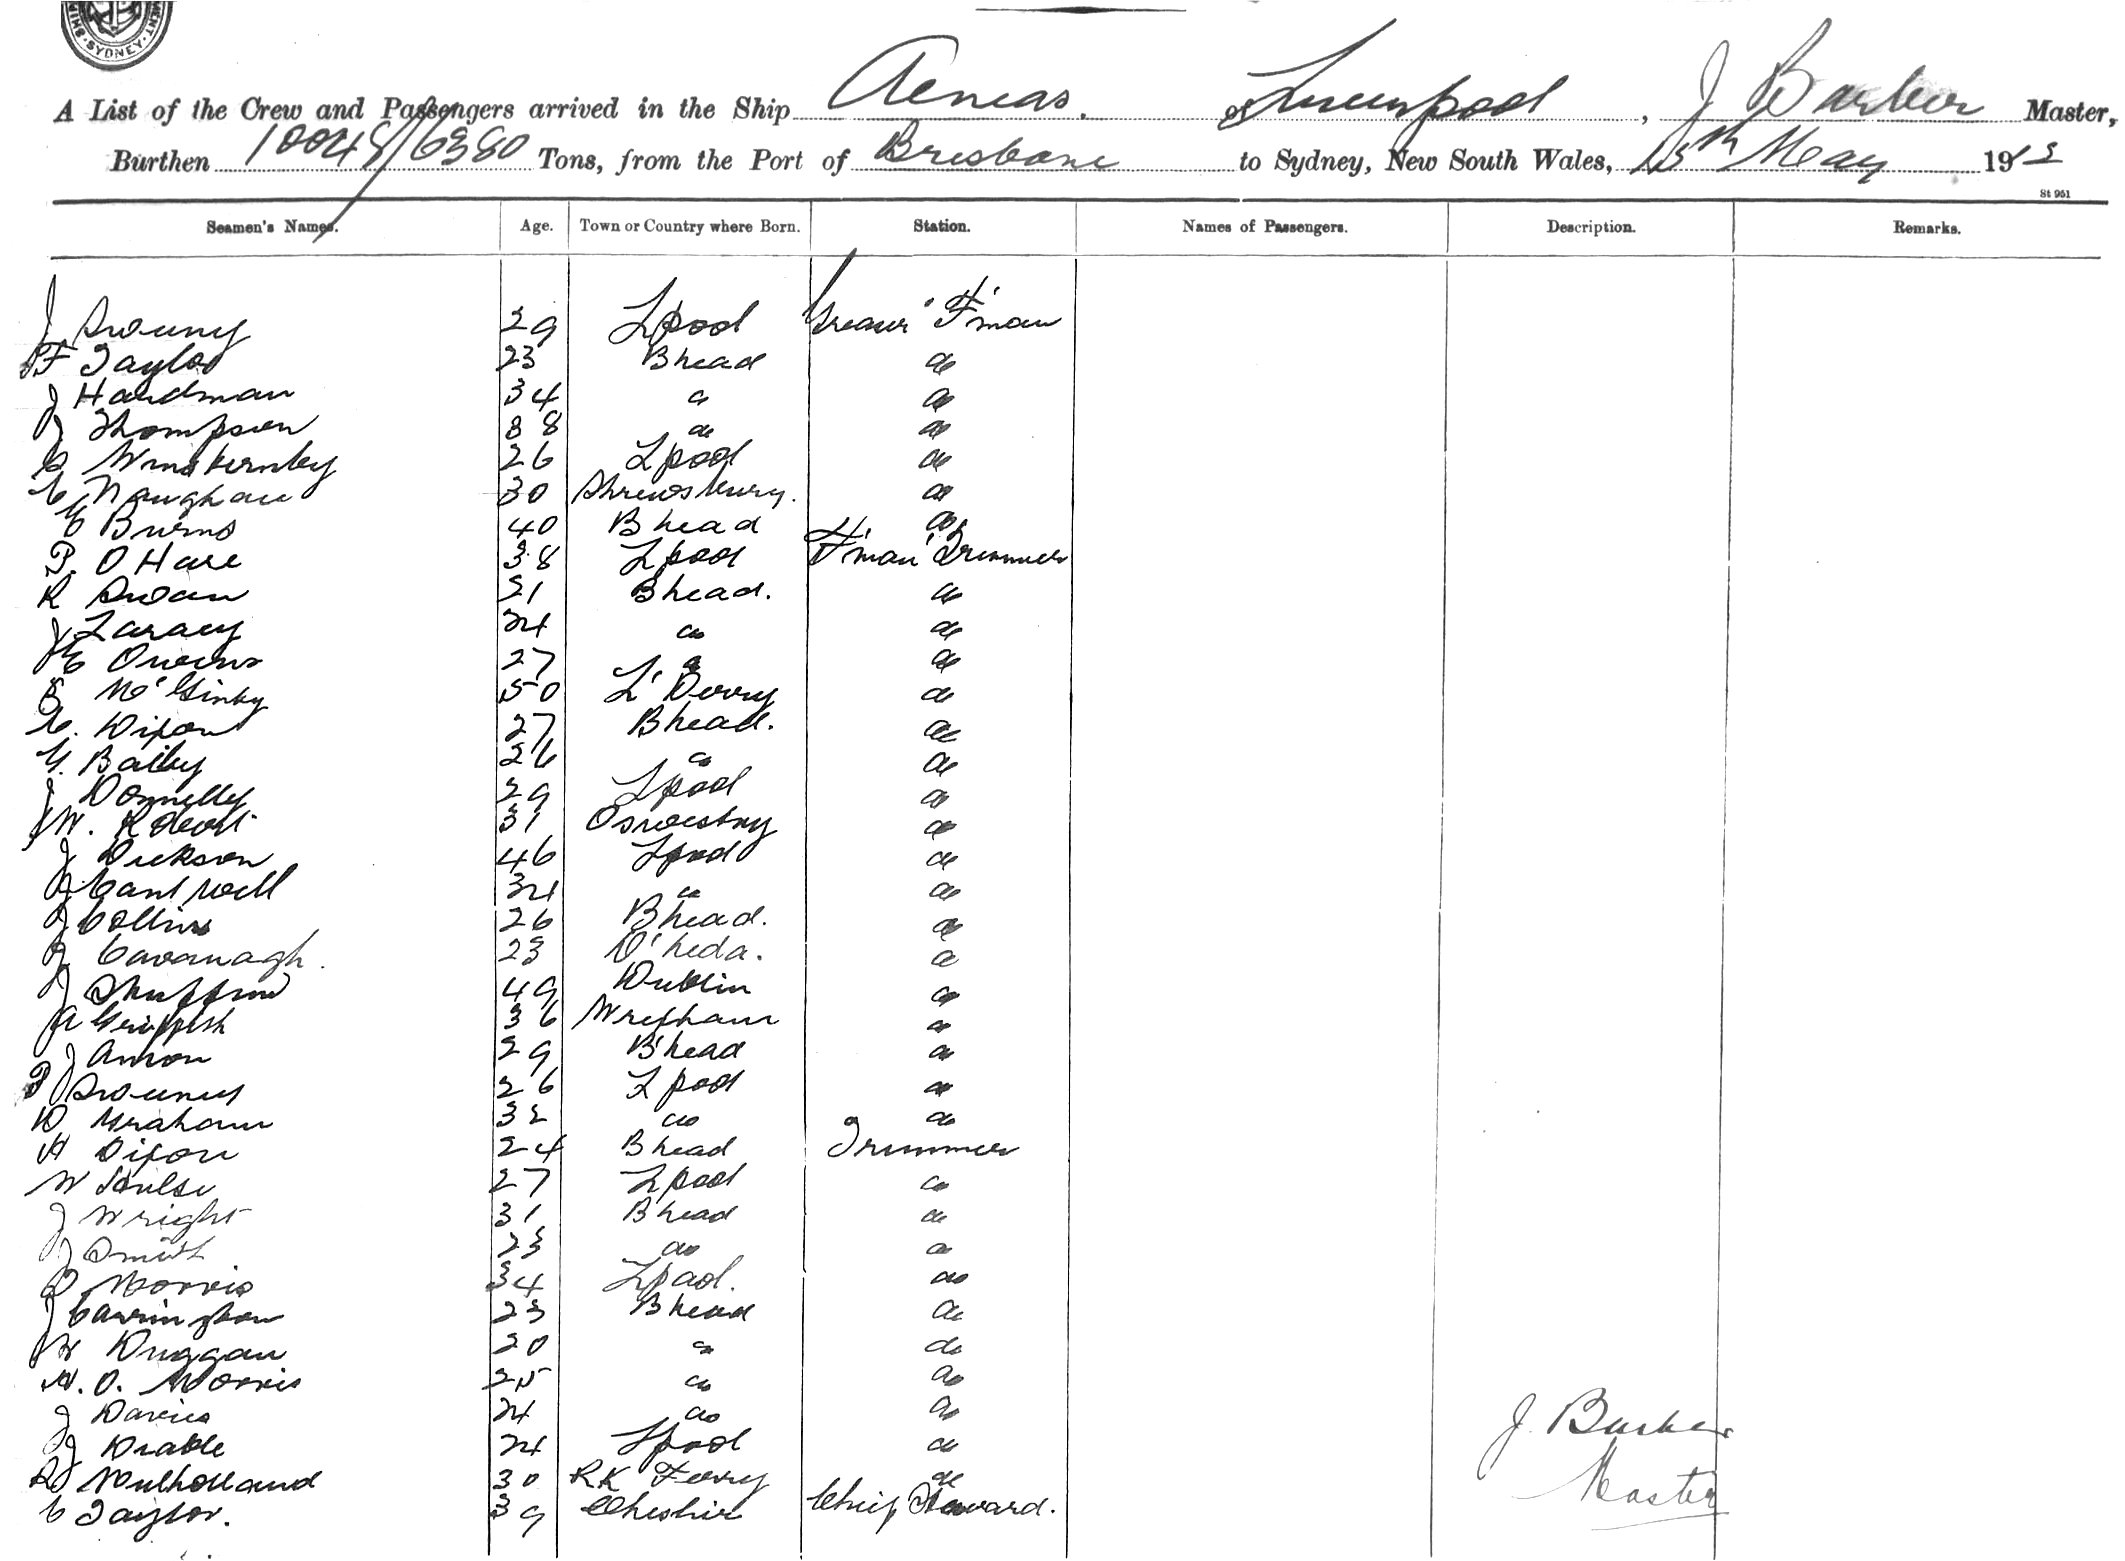 SYDNEY
A List of the Crew and Passengers arrived in the Ship Aeneas. of Liverpool, J Barber Master,
Burthen 10048/6380 Tons, from the Port of Brisbane to Sydney, New South Wales, 13th May 1913
St 951
Seamen's Names. Age. Town or Country where Born. Station. Names of Passengers. Description. Remarks.
J 29 L'pool Greaser F'man
F Taylor 23 Bhead do
J Hardman 34 do do
J Thompson 38 do do
26 Lpool do
30 Shrewsbury. do
Burns 40 Bhead do
P. O Hare 38 Lpool F'man Trimmer
R Swan 21 Bhead. do
J Laracy 24 do do
Owens 27 do do
50 L'Derry do
C. Dixon 27 Bhead. do
G. Baily 26 do do
J Donnelly 29 Lpool do
W. 31 Oswestry do
J Dickson 46 Lpool do
J Cantwell 34 do do
J Collins 26 Bhead. do
J Cavanagh. 23 D'heda. do
J 49 Dublin do
A Griffith 36 Wrexham do
J 29 B'head do
P 26 Lpool do
D Graham 32 do do
H Dixon 24 Bhead Trimmer
W Hulse 27 Lpool do
J Wright 31 Bhead do
J Smith 23 do do
Morris 34 Lpool. do
J Carrington 23 Bhead do
Duggan 20 do do
H. O. Morris 25 do do
J Davies 24 do do
J Drable 24 Lpool do
Mulholland 30 RK Ferry do
C Taylor. 39 Cheshire Chief Steward.
J. Barber
Master